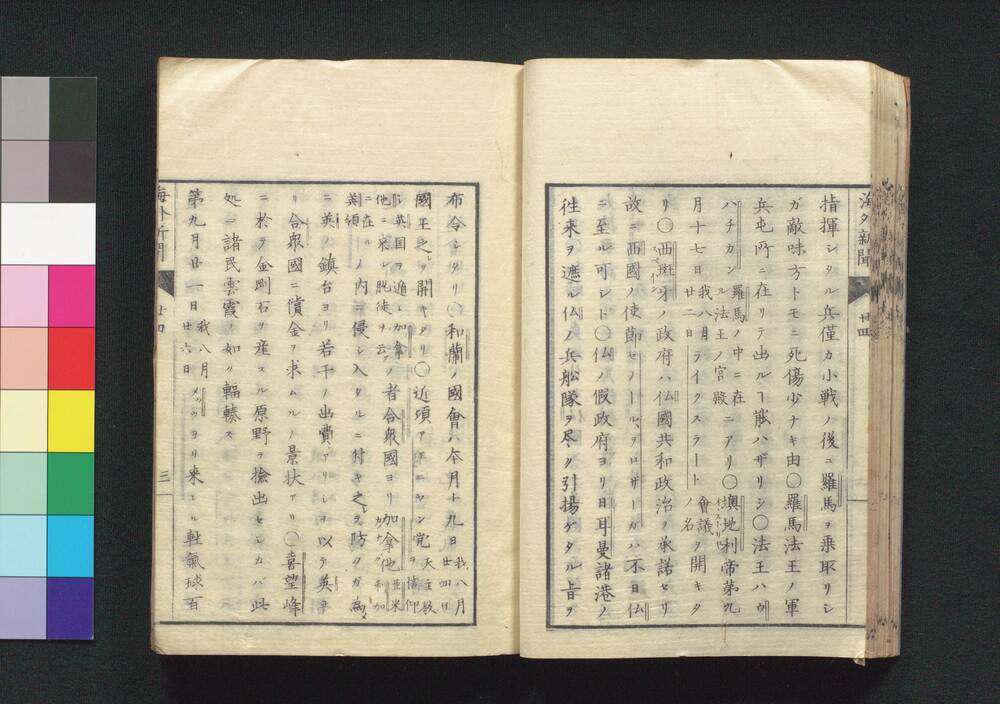 海外新聞
廿四
指揮シタル兵僅カ小戦ノ後ニ羅馬ヲ乗取リシ
ガ敵味方トモニ死傷少ナキ由〇羅馬法王ノ軍
兵屯所ニ在リテ出ルヿ能ハザリシ〇法王ハヴ
ハチカン羅馬ノ中ニ在ル法王ノ宮殿ニアリ〇墺地利帝第九
月十七日我八月廿二日ライクスラート会議ノ名ヲ開キタ
リ〇西班牙ノ政府ハ仏國共和政治ヲ承諾セリ
故ニ西國ノ使節セノールヲロザーカハ不日仏
ニ至ル可シト〇仏ノ假政府ヨリ日耳曼諸港ノ
往来ヲ遮ル仏ノ兵船隊ヲ尽ク引揚ゲタル旨ヲ
布令シタリ〇和蘭ノ國會ハ本月十九日我八月廿四日
國王之レヲ開キタリ〇近頃フエニヤン党天主教ヲ信仰
シ英国ヲ遁レ加拿他ニ来レル脱徒ヲ云フノ者合衆國ヨリ加拿他亜米利加
ニ在ル英領ノ内ニ侵シ入タルニ付キ之レヲ防タガ為
ニ英ノ鎮台ヨリ若干ノ出費アリシヲ以テ英ヨ
リ合衆國ニ償金ヲ求ムルノ景状アリ〇喜望峰
ニ於テ金剛石ヲ産スル原野ヲ捡出セシカバ此
処ニ諸民雲霞ノ如ク輻輳ス
第九月廿一日我八月廿六日メッツヨリ来レル軽氣球百
海外新聞
廿四
三